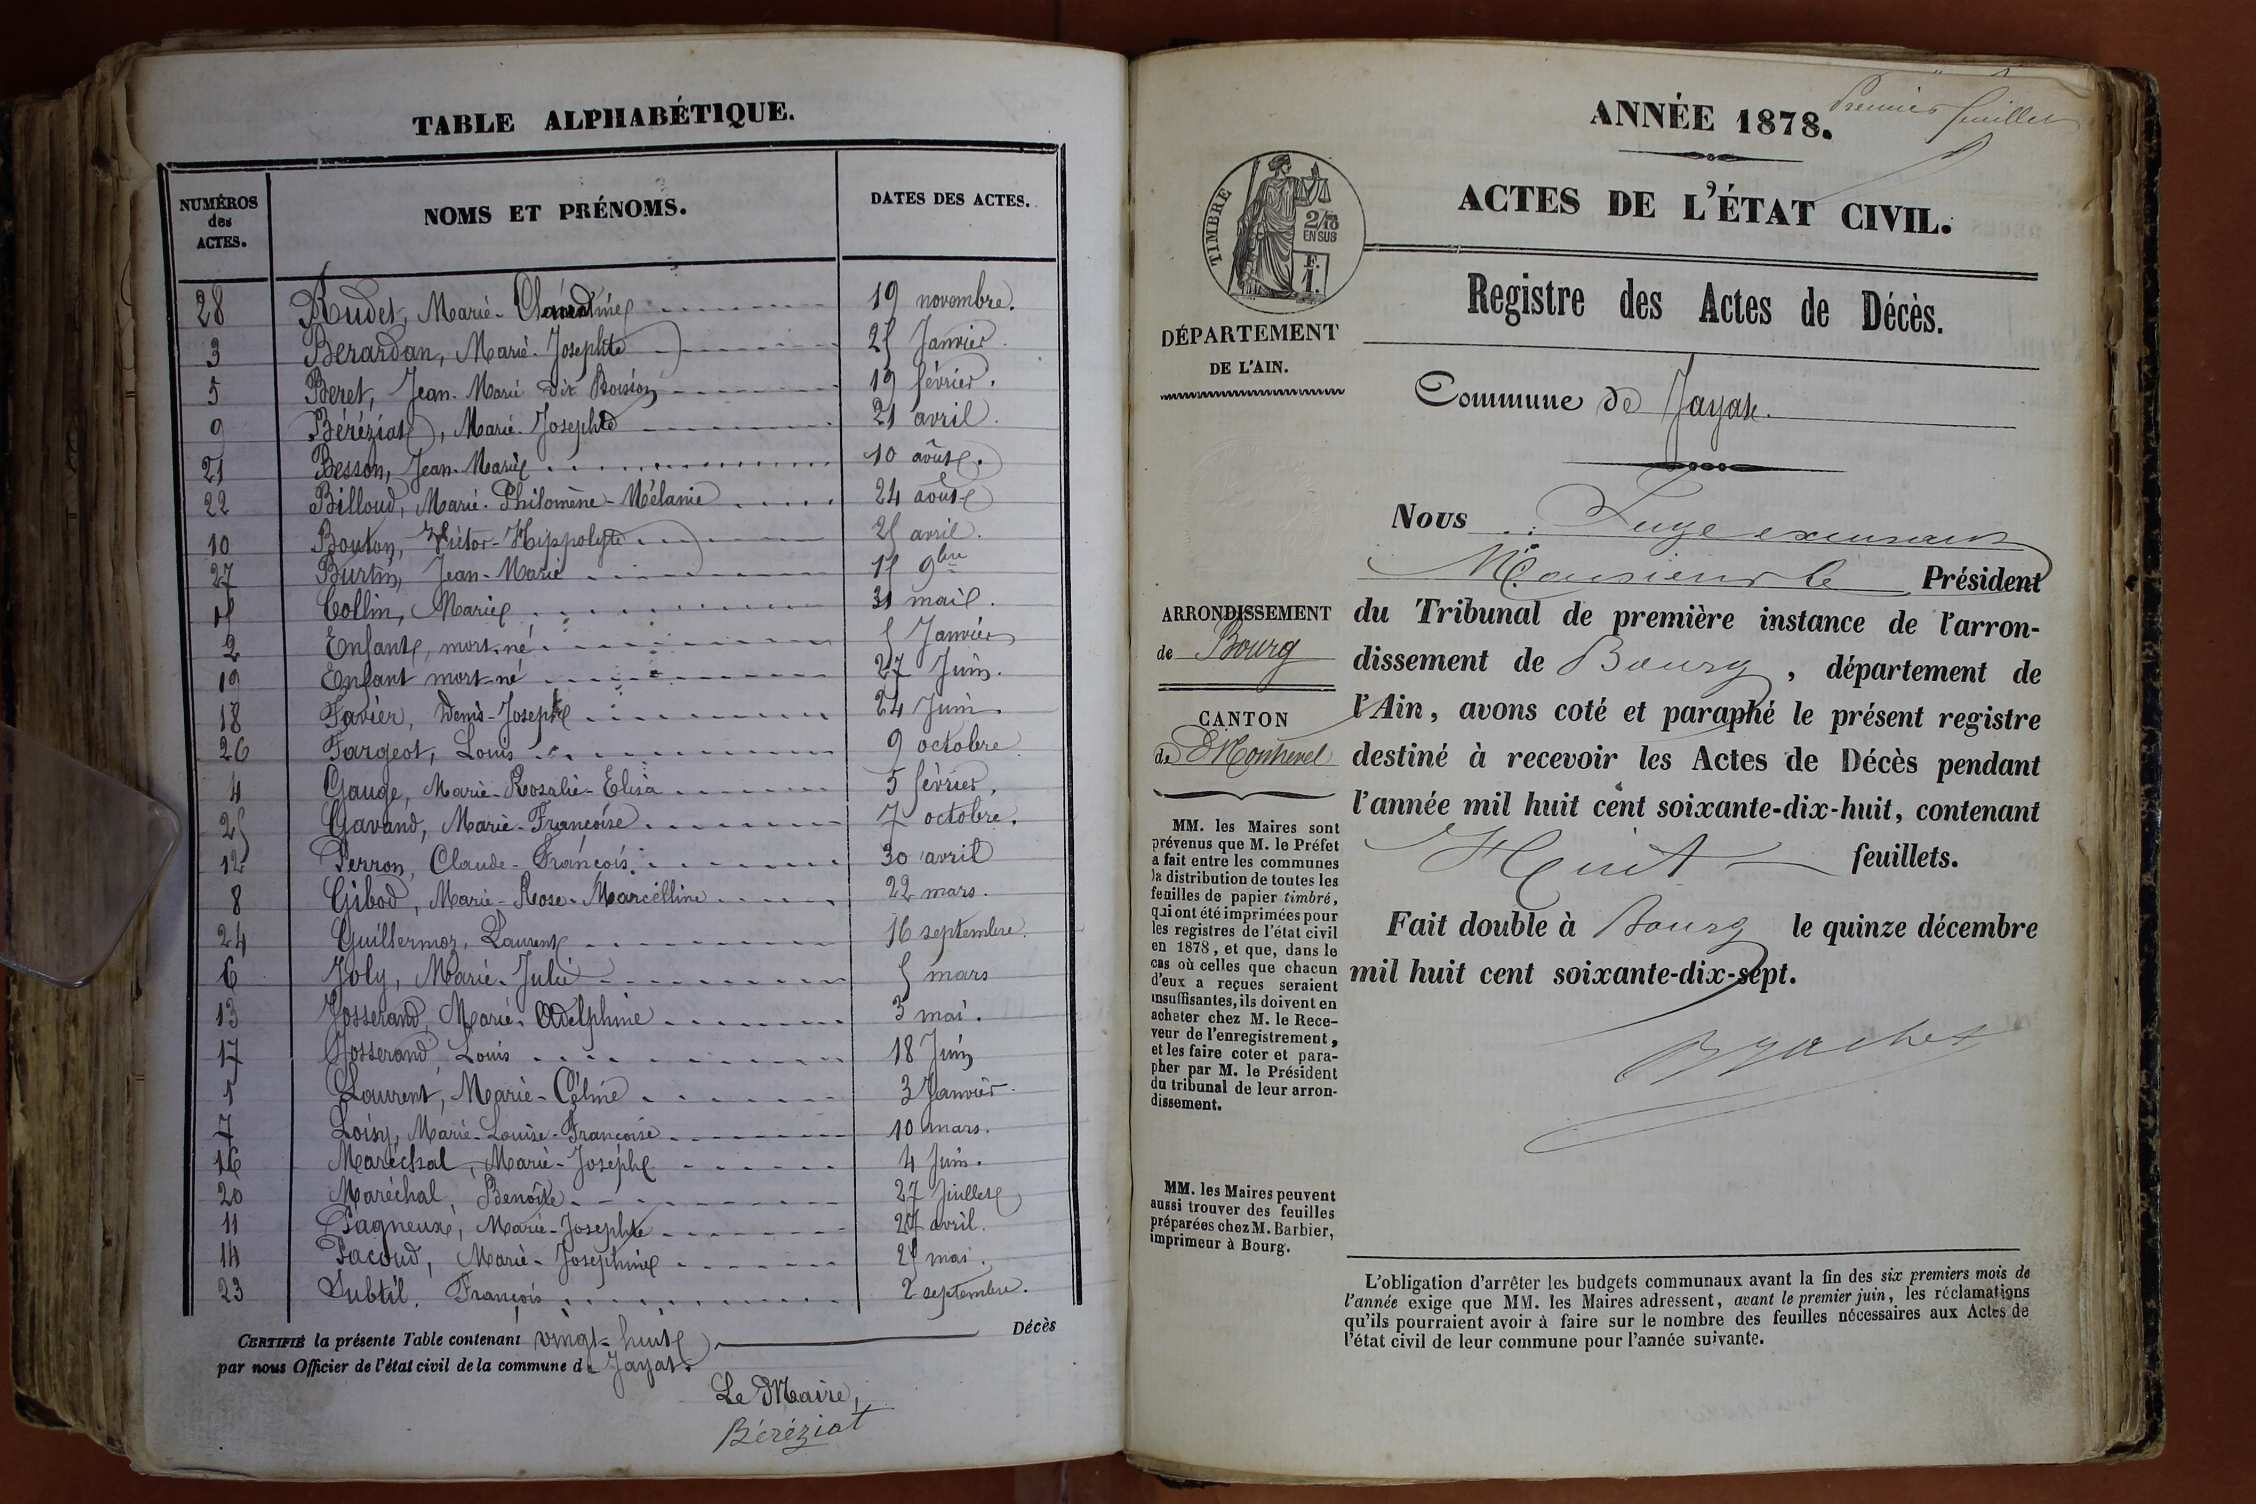 TABLE ALPHABÉTIQUE.
NUMÉROS des ACTES. NOMS ET PRÉNOMS. DATES DES ACTES.
28 Marie- 19 novembre.
3 Berardan, Marie-Josephte 25 Janvier.
5 Beret, Jean-Marie dit 19 février.
9 Béréziat, Marie-Josephte 21 avril.
21 Besson, Jean-Marie 10 août.
22 Billoud, Marie-Philomène-Mélanie 24 août
10 Bouton, Victor-Hyppolyte 25 avril.
27 Burtin, Jean-Marie 15 9bre
15 Collin, Marie 31 mai.
2 Enfant, mort-né 5 Janvier
19 Enfant mort-né 27 Juin.
18 Favier, Denis-Joseph 24 Juin
26 Fargeot, Louis 9 octobre
4 Gauge, Marie-Rosalie-Elisa 5 février.
25 Gavand, Marie-Françoise 7 octobre.
12 Perron, Claude-François 30 avril
8 Gibod, Marie-Rose-Marcelline 22 mars.
24 Guillermoz, Laurent 16 septembre.
6 Joly, Marie-Julie 5 mars
13 Josserand, Marie-Adelphine 3 mai.
17 Josserand, Louis 18 Juin
1 Laurent, Marie-Céline 3 Janvier
7 Loisy, Marie-Louise-Françoise 10 mars.
16 Maréchal, Marie-Josephe 4 Juin.
20 Maréchal, Benoîte 27 Juillet
11 Pagneux, Marie-Josephte avril.
14 Pacoud, Marie-Josephine 25 mai.
23 Subtil, François 2 septembre.
CERTIFIÉ la présente Table contenant vingt-huit Décès
par nous Officier de l'état civil de la commune de Jayat.
Le Maire,
Béréziat
Premier feuillet
ANNÉE 1878.
ACTES DE L'ÉTAT CIVIL.
TIMBRE
2/10
EN SUS
F.
1.
Registre des Actes de Décès.
DÉPARTEMENT
DE L'AIN.
Commune de Jayat.
Nous Juge
Monsieur le Président
du Tribunal de première instance de l'arron-
dissement de Bourg, département de
l'Ain, avons coté et paraphé le présent registre
destiné à recevoir les Actes de Décès pendant
l'année mil huit cent soixante-dix-huit, contenant
Huit feuillets.
Fait double à Bourg le quinze décembre
mil huit cent soixante-dix-sept.
ARRONDISSEMENT
de Bourg
CANTON
de Montrevel
MM. les Maires sont
prévenus que M. le Préfet
a fait entre les communes
la distribution de toutes les
feuilles de papier timbré,
qui ont été imprimées pour
les registres de l'état civil
en 1878, et que, dans le
cas où celles que chacun
d'eux a reçues seraient
insuffisantes, ils doivent en
acheter chez M. le Rece-
veur de l'enregistrement,
et les faire coter et para-
pher par M. le Président
du tribunal de leur arron-
dissement.
MM. les Maires peuvent
aussi trouver des feuilles
préparées chez M. Barbier,
imprimeur à Bourg.
L'obligation d'arrêter les budgets communaux avant la fin des six premiers mois de
l'année exige que MM. les Maires adressent, avant le premier juin, les réclamations
qu'ils pourraient avoir à faire sur le nombre des feuilles nécessaires aux Actes de
l'état civil de leur commune pour l'année suivante.